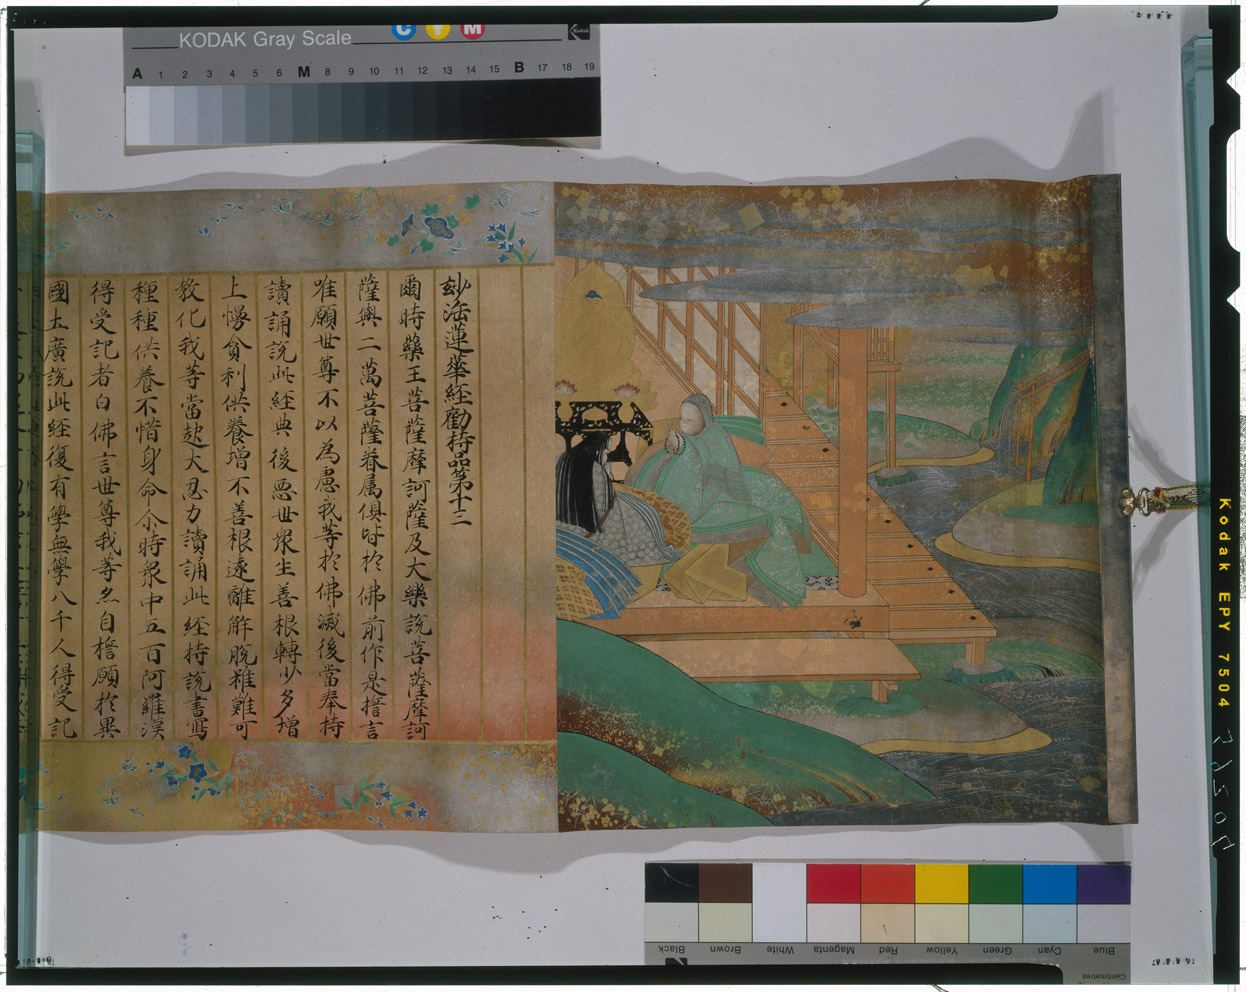 KODAK Gray Scale
C Y M
Kodak
A 1 2 3 4 5 6 M 8 9 10 11 12 13 14 15 B 17 18 19
玅法蓮華經勸持品第十三
爾時藥王菩薩摩訶薩及大樂說菩薩摩訶
薩與二萬菩薩眷屬俱皆於佛前作是誓言
唯願世尊不以為慮我等於佛滅後當奉持
讀誦說此經典後惡世眾生善根轉少多增
上慢貪利供養增不善根遠離解脫雖難可
教化我等當起大忍力讀誦此經持說書寫
種種供養不惜身命尒時眾中五百阿羅漢
得受記者白佛言世尊我等亦自誓願於異
國土廣說此經復有學無學八千人得受記
Kodak EPY 7504
Blue Cyan Green Yellow Red Magenta White Brown Black
Centimetres